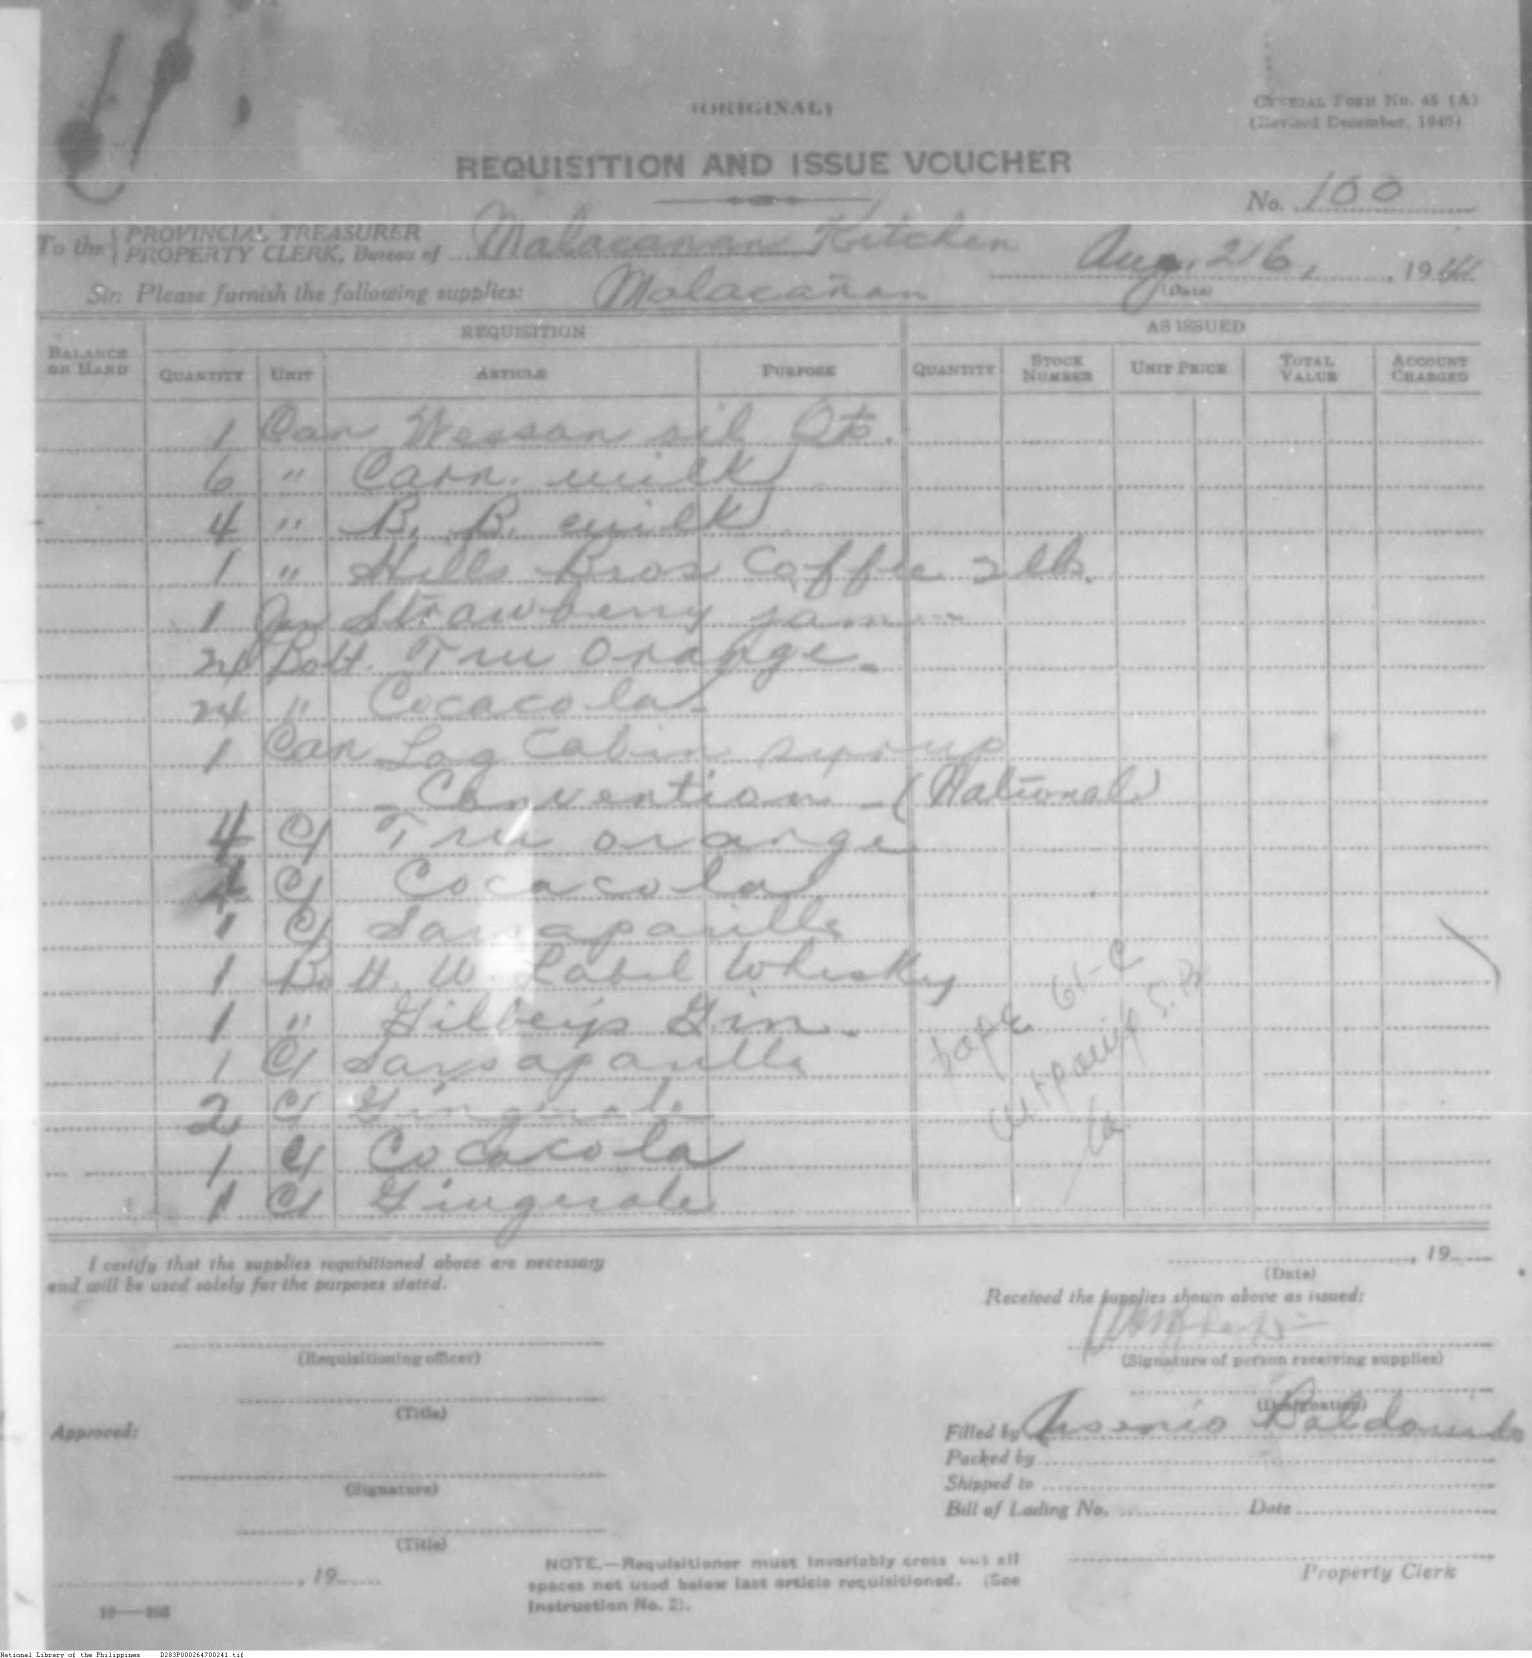 (ORIGINAL)
GENERAL FORM No. 45 (A)
(Revised December, 1940)
REQUISITION AND ISSUE VOUCHER
No. 100
To the { PROVINCIAL TREASURER
PROPERTY CLERK, Bureau of Malacañan Kitchen
Aug. 26, , 19
(Date)
Sir: Please furnish the following supplies: Malacañan
REQUISITION AS ISSUED
BALANCE ON HAND QUANTITY UNIT ARTICLE PURPOSE QUANTITY STOCK NUMBER UNIT PRICE TOTAL VALUE ACCOUNT CHARGED
1 Can Wesson oil Qts.
6 " Carn. milk
4 " B. B. milk
1 " Hills Bros Coffee 2 lbs.
1 Jar Strawberry jam
24 Bott. Tru Orange
24 " Cocacola
1 Can Log Cabin syrup
- Convention - (National)
4 C/ Tru orange
4 C/ Cocacola
1 C/ Sarsaparilla
1 Bott. W. Label Whisky
1 " Gilbeys Gin.
1 C/ Sarsaparilla
2 C/ Gingerale
1 C/ Cocacola
1 C/ Gingerale
I certify that the supplies requisitioned above are necessary
and will be used solely for the purposes stated.
, 19
(Date)
Received the supplies shown above as issued:
(Requisitioning officer)
(Signature of person receiving supplies)
(Title)
(Designation)
Approved:
Filled by Arsenio Baldomero
Packed by
Shipped to
(Signature)
Bill of Lading No. Date
(Title)
, 19
NOTE.—Requisitioner must invariably cross out all
spaces not used below last article requisitioned. (See
Instruction No. 2).
Property Clerk
National Library of the Philippines D283P000264700241.tif